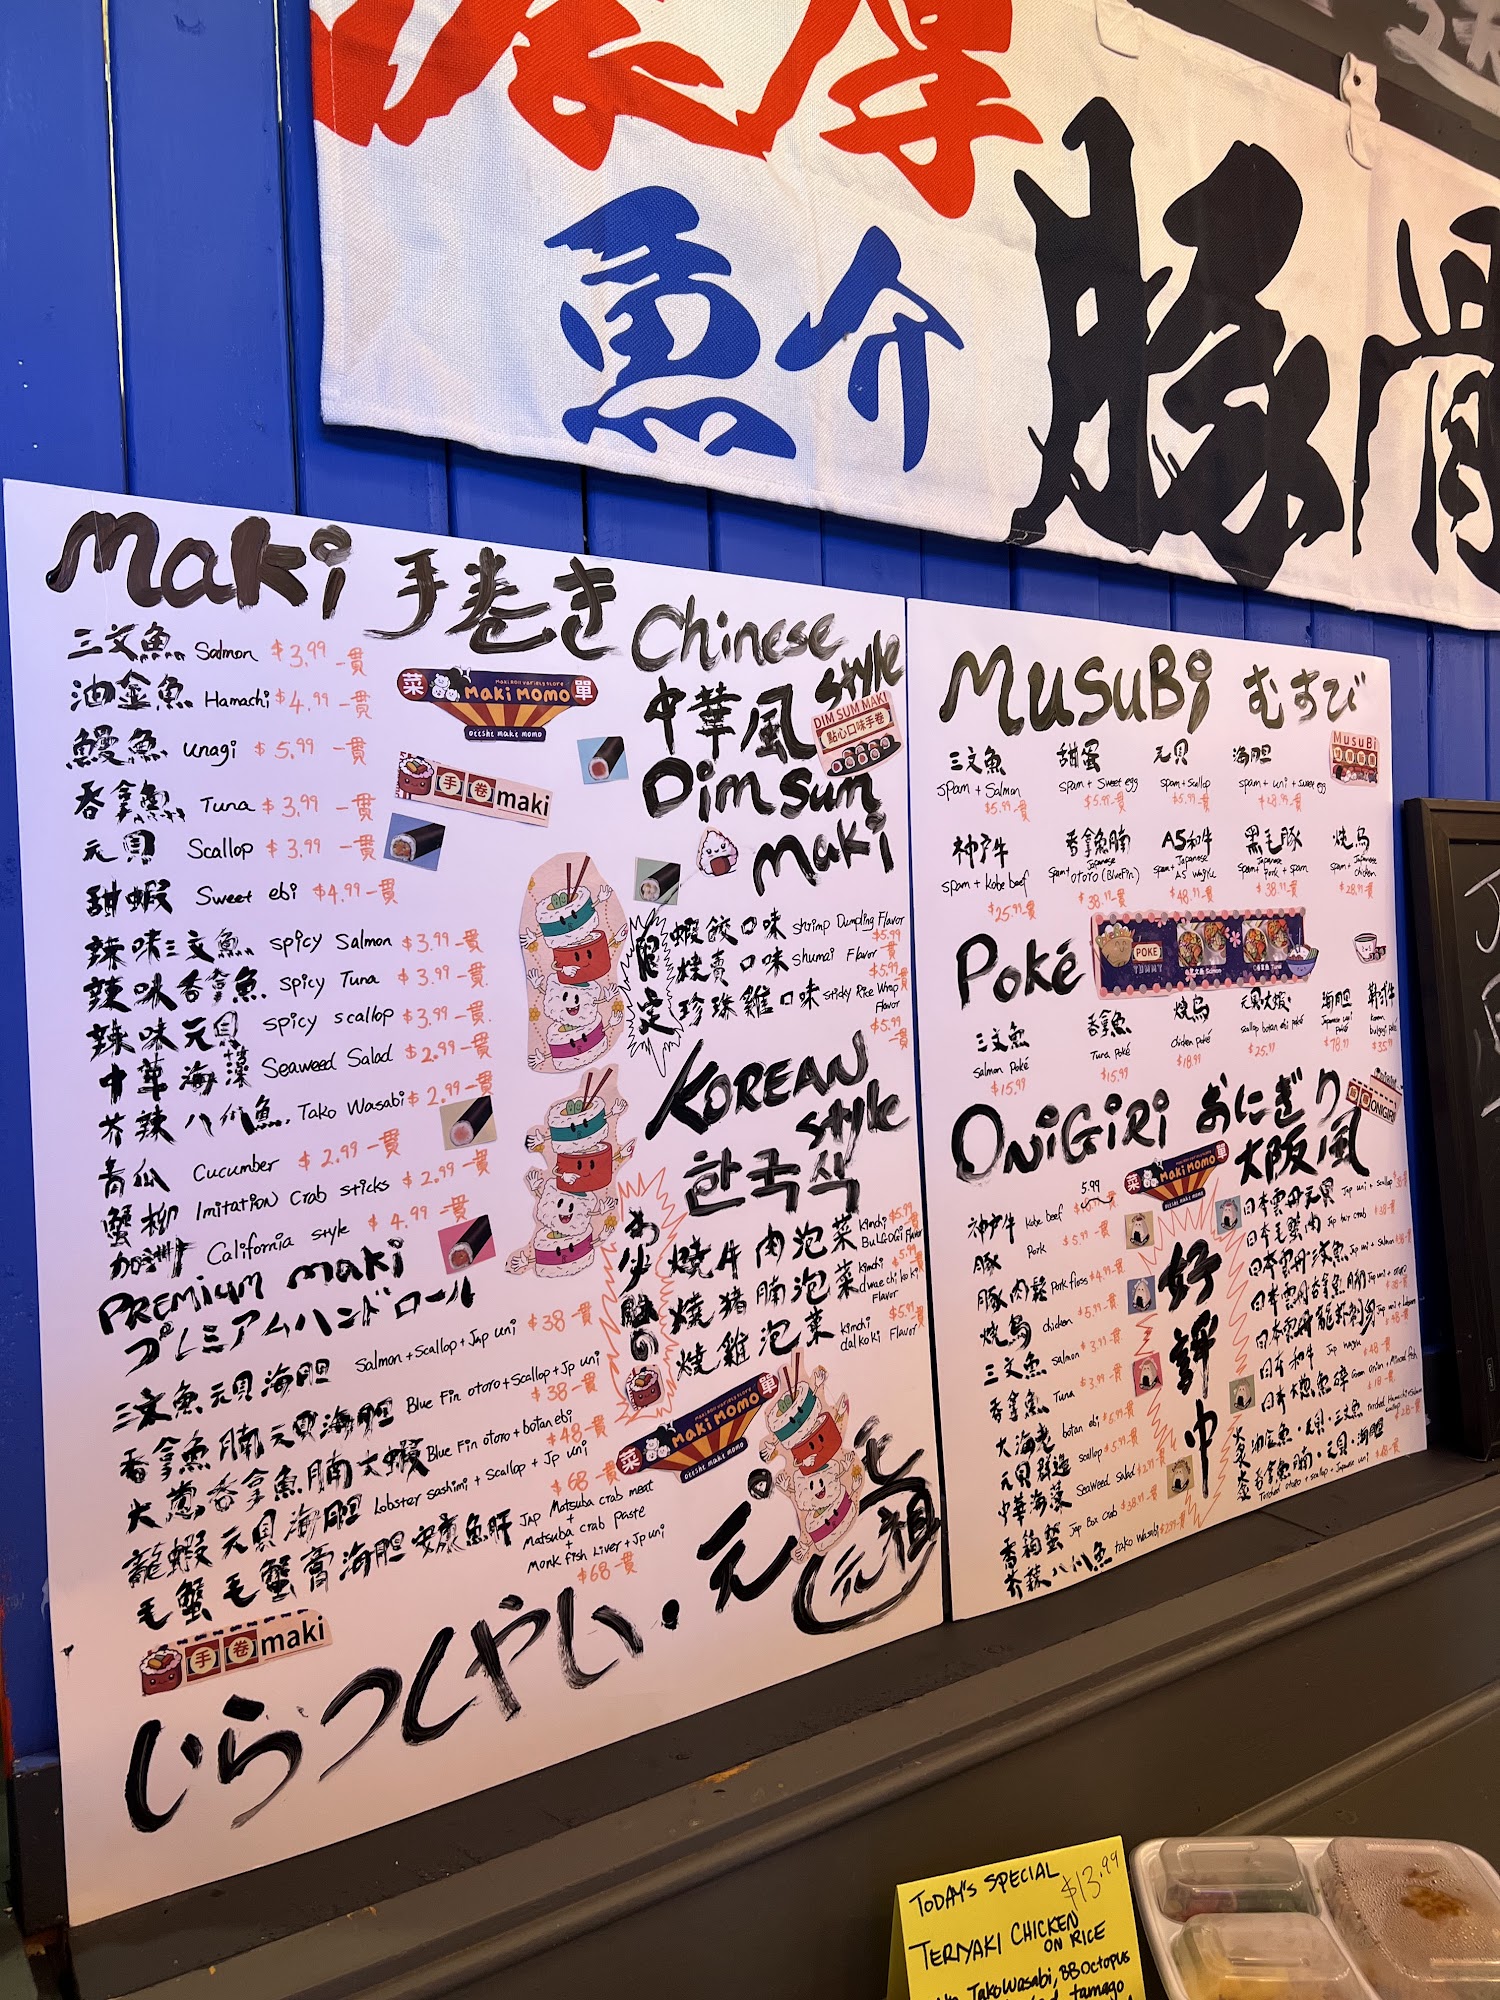 濃厚
魚介
豚骨
Maki 手巻き
三文魚 Salmon $3.99 一貫
油金魚 Hamachi $4.99 一貫
鰻魚 unagi $5.99 一貫
吞拿魚 Tuna $3.99 一貫
元貝 Scallop $3.99 一貫
甜蝦 Sweet ebi $4.99 一貫
辣味三文魚 spicy Salmon $3.99 一貫
辣味吞拿魚 spicy Tuna $3.99 一貫
辣味元貝 spicy scallop $3.99 一貫
中華海藻 Seaweed Salad $2.99 一貫
芥辣八爪魚 Tako Wasabi $2.99 一貫
青瓜 Cucumber $2.99 一貫
蟹柳 Imitation Crab sticks $2.99 一貫
加洲 California style $4.99 一貫
菜 Maki MOMO 單
MAKI ROLL VARIETY STORE
DEESHE MAKE MOMO
手卷 maki
PREMIUM maki
プレミアムハンドロール
三文魚元貝海胆 Salmon + Scallop + Jap uni $38 一貫
吞拿魚腩元貝海胆 Blue Fin otoro + Scallop + Jp uni $38 一貫
大葱吞拿魚腩大蝦 Blue Fin otoro + botan ebi $48 一貫
龍蝦元貝海胆 Lobster sashimi + Scallop + Jp uni $68 一貫
毛蟹毛蟹膏海胆安康魚肝 JAP Matsuba crab meat
+
Matsuba crab paste
+
Monk fish Liver + Jp uni
$68 一貫
手卷 maki
いらっしゃい.元祖
Chinese style
中華風
DIM SUM MAKI
點心口味手卷
Dim sum maki
限定
蝦餃口味 Shrimp Dumpling Flavor $5.99 一貫
燒賣口味 Shumai Flavor $5.99 一貫
珍珠雞口味 Sticky Rice Wrap Flavor $5.99 一貫
KOREAN style
한국식
燒牛肉泡菜 Kimchi BULGOGI Flavor $5.99
燒猪腩泡菜 Kimchi dwaechi koki Flavor $5.99
燒雞泡菜 Kimchi dalkoki Flavor $5.99
菜 Maki MOMO 單
MAKI ROLL VARIETY STORE
DEESHE MAKE MOMO
元祖
MUSUBi むすび
MusuBi
三文魚 spam + Salmon $5.99 一貫
甜蛋 spam + Sweet egg $5.99 一貫
元貝 spam + Scallop $5.99 一貫
海胆 spam + uni + sweet egg
神戸牛 spam + kobe beef $25.99 一貫
吞拿魚腩 spam + Japanese OTORO (BlueFin) $38.99 一貫
A5和牛 spam + Japanese A5 Wagyu $48.99 一貫
黑毛豚 Spam + Japanese Pork + spam $38.99 一貫
燒鸟 spam + Japanese chicken $28.99 一貫
Poké
POKE
YUMMY
三文魚 Salmon Poké $15.99
吞拿魚 Tuna Poké $15.99
燒鸟 chicken Poké $18.99
元貝大蝦 scallop botan ebi poké $25.99
海胆 Japanese uni Poké $78.99
韓式牛 Korean bulgogi poké
ONiGiRi おにぎり
大阪風
ONIGIRI
菜 Maki MOMO 單
DEESHE MAKE MOMO
神戸牛 Kobe beef 5.99 一貫
豚 Pork $5.99 一貫
豚肉鬆 Pork floss $4.99 一貫
燒鸟 chicken $5.99 一貫
三文魚 salmon $3.99 一貫
吞拿魚 Tuna $3.99 一貫
botan ebi $5.99 一貫
元貝 scallop $5.99 一貫
中華海藻 Seaweed Salad $2.99 一貫
香箱蟹 Jap Box Crab $38.99 一貫
芥辣八爪魚 tako wasabi $2.99 一貫
好評中
日本雲丹元貝 Jap uni + scallop
日本毛蟹肉 Jap hair crab
日本雲丹三文魚 Jap uni + salmon
日本雲丹吞拿魚腩 Jap uni + otoro
日本雲丹龍虾刺身 Jap uni + Lobster
日本和牛 Jap wagyu
日本大葱魚碎 Green onion + Minced fish
油金魚・元貝・三文魚 Torched Hamachi + Salmon scallop
吞拿魚腩・元貝・海胆
Torched otoro + scallop + Japanese uni
TODAY'S SPECIAL $13.99
TERIYAKI CHICKEN
ON RICE
TAKOWASABI, BBOCTOPUS
tamago